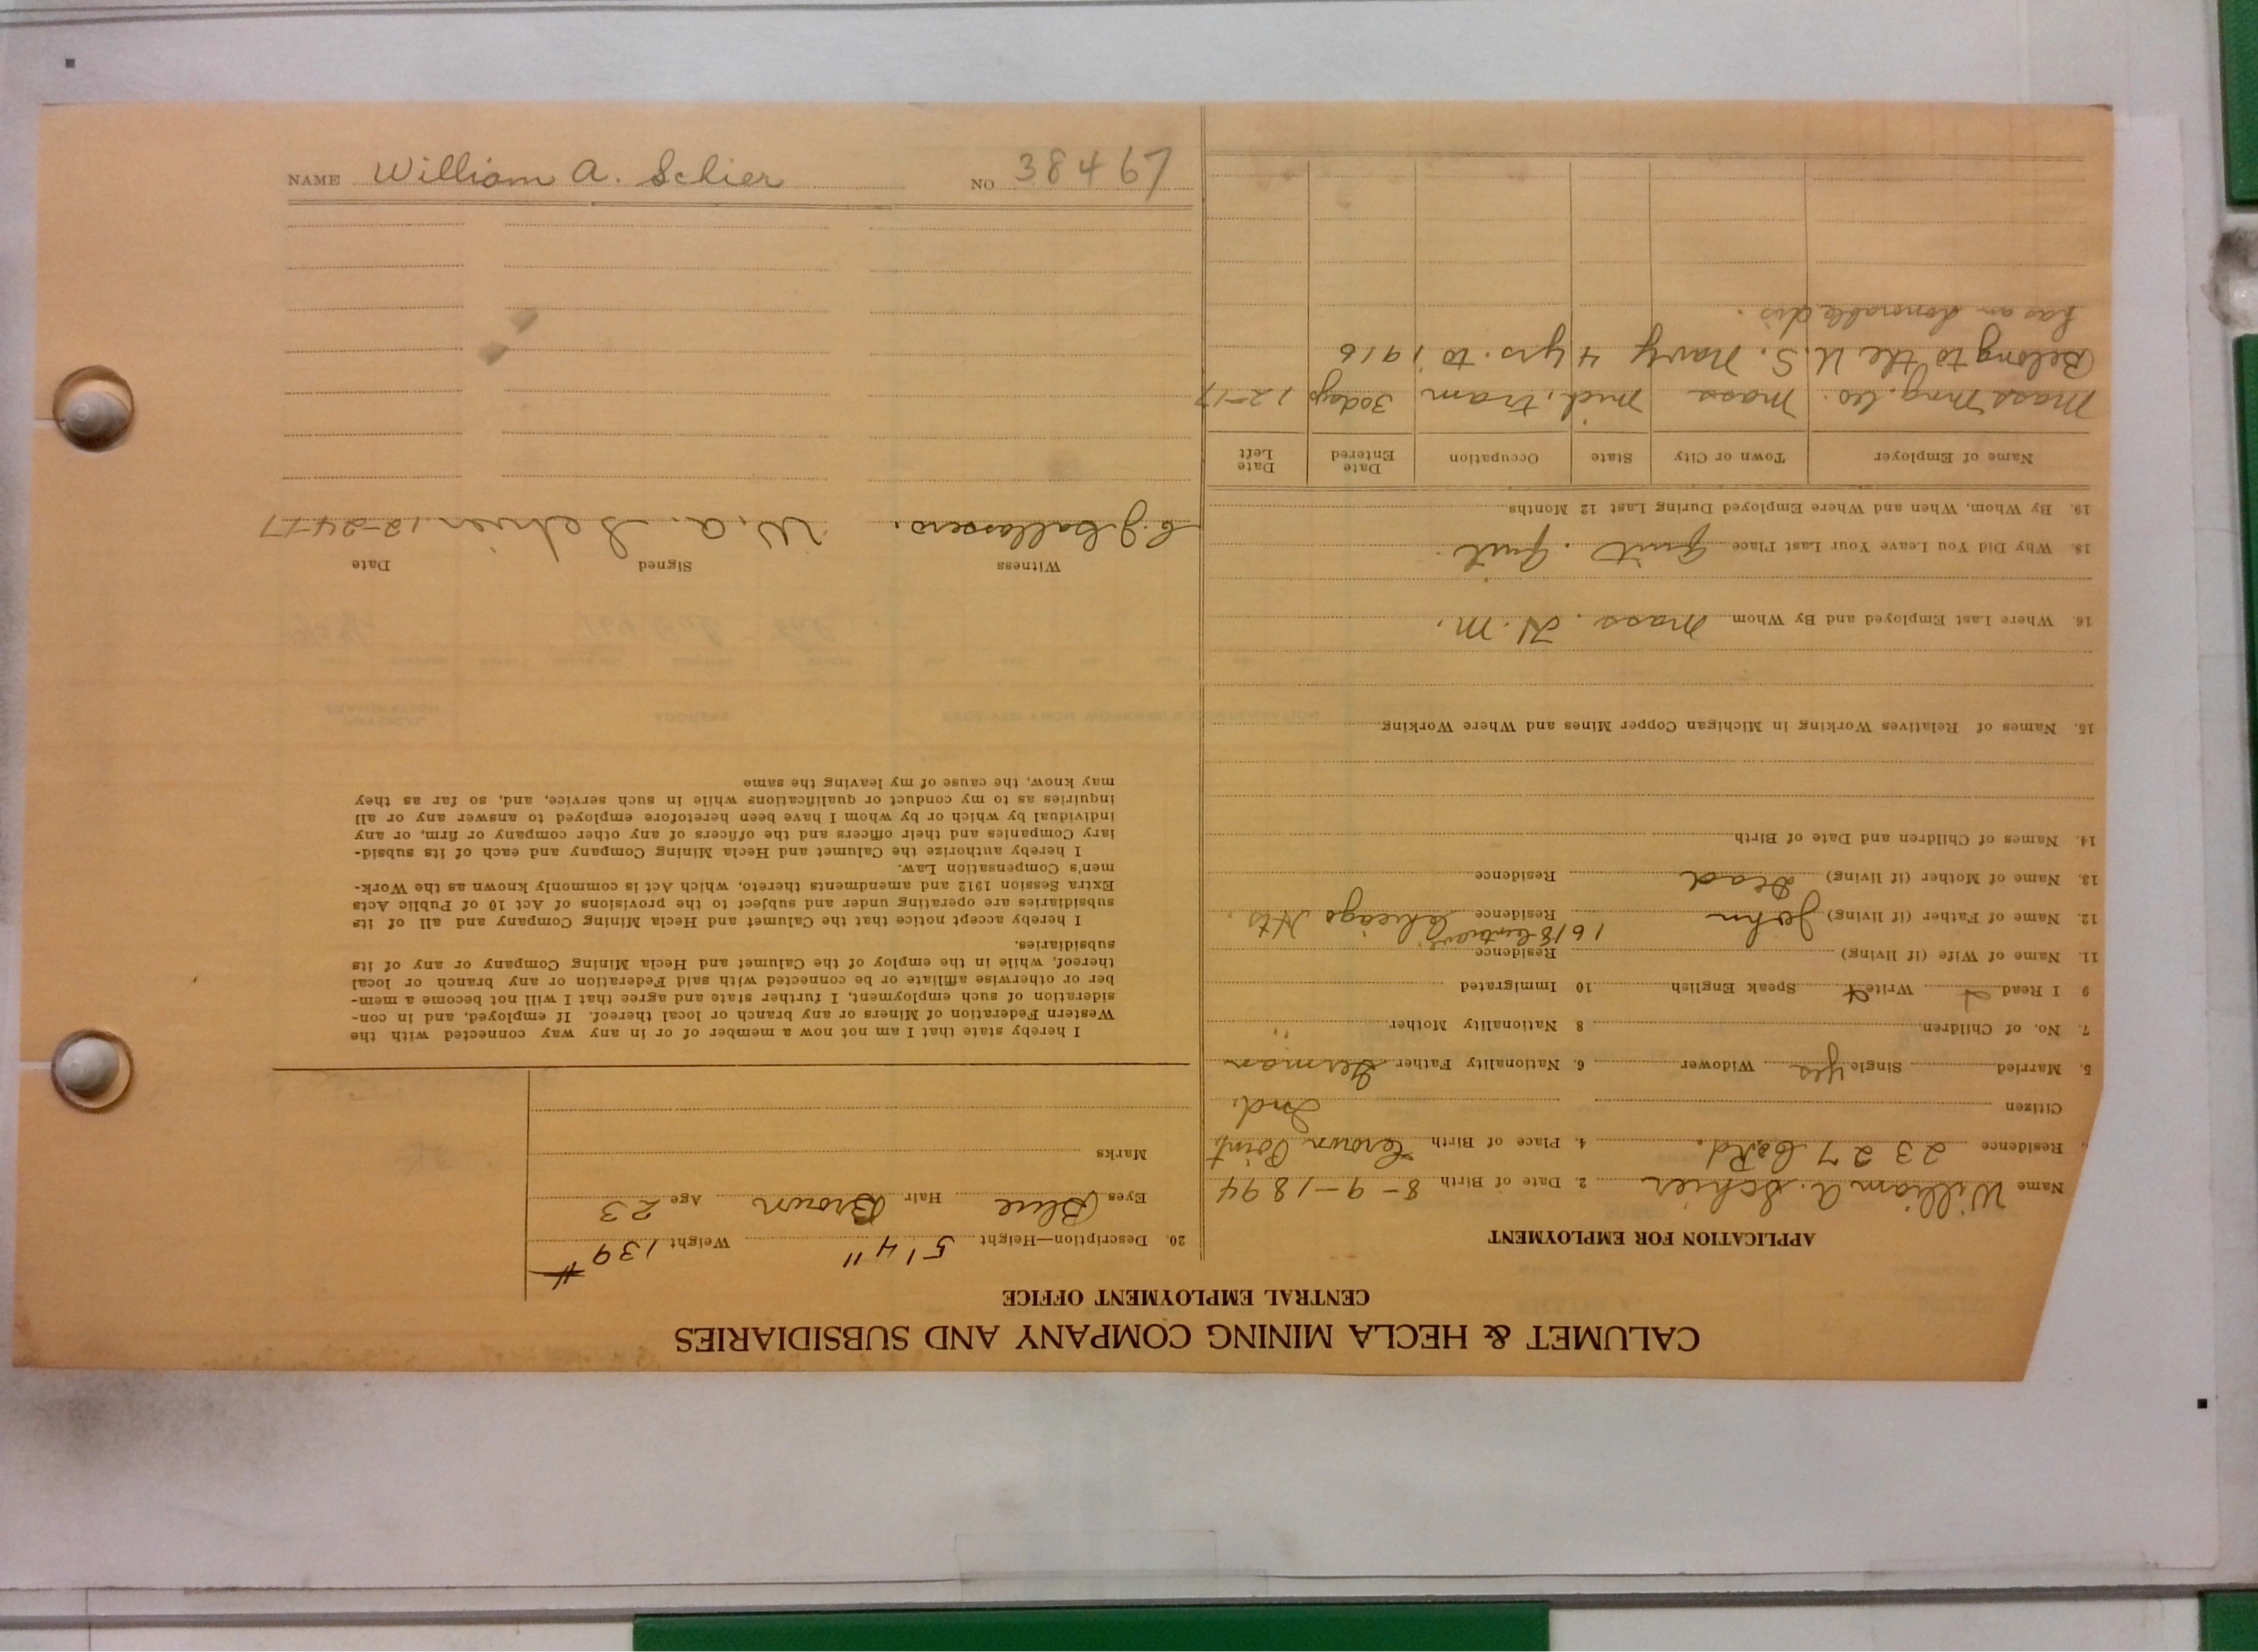 CALUMET & HECLA MINING COMPANY AND SUBSIDIARIES
CENTRAL EMPLOYMENT OFFICE
APPLICATION FOR EMPLOYMENT
Name William A. Schier 2. Date of Birth 8-9-1894
Residence 2327 Co. Rd. 4. Place of Birth Crown Point
Citizen Ind.
5. Married Single Yes Widower 6. Nationality Father German
7. No. of Children 8 Nationality Mother "
9 I Read Write Speak English 10 Immigrated
11. Name of Wife (if living) Residence
1618
12. Name of Father (if living) John Residence Chicago Hts.
13. Name of Mother (if living) Dead Residence
14. Names of Children and Date of Birth
15. Names of Relatives Working in Michigan Copper Mines and Where Working
16. Where Last Employed and By Whom Mass. H. M.
18. Why Did You Leave Your Last Place Quit. Quit.
19. By Whom, When and Where Employed During Last 12 Months
Name of Employer Town or City State Occupation Date Entered Date Left
Mass Mng. Co. Mass Mich. tram 30 days 12-17
Belong to the U.S. Navy 4 yrs. to 1916
has an honorable dis.
20. Description—Height 5'4" Weight 139 #
Eyes Blue Hair Brown Age 23
Marks
I hereby state that I am not now a member of or in any way connected with the
Western Federation of Miners or any branch or local thereof. If employed, and in con-
sideration of such employment, I further state and agree that I will not become a mem-
ber or otherwise affiliate or be connected with said Federation or any branch or local
thereof, while in the employ of the Calumet and Hecla Mining Company or any of its
subsidiaries.
I hereby accept notice that the Calumet and Hecla Mining Company and all of its
subsidiaries are operating under and subject to the provisions of Act 10 of Public Acts
Extra Session 1912 and amendments thereto, which Act is commonly known as the Work-
men's Compensation Law.
I hereby authorize the Calumet and Hecla Mining Company and each of its subsid-
iary Companies and their officers and the officers of any other company or firm, or any
individual by which or by whom I have been heretofore employed to answer any or all
inquiries as to my conduct or qualifications while in such service, and, so far as they
may know, the cause of my leaving the same
Witness Signed Date
W. A. Schier 12-24-17
NAME William A. Schier NO 38467